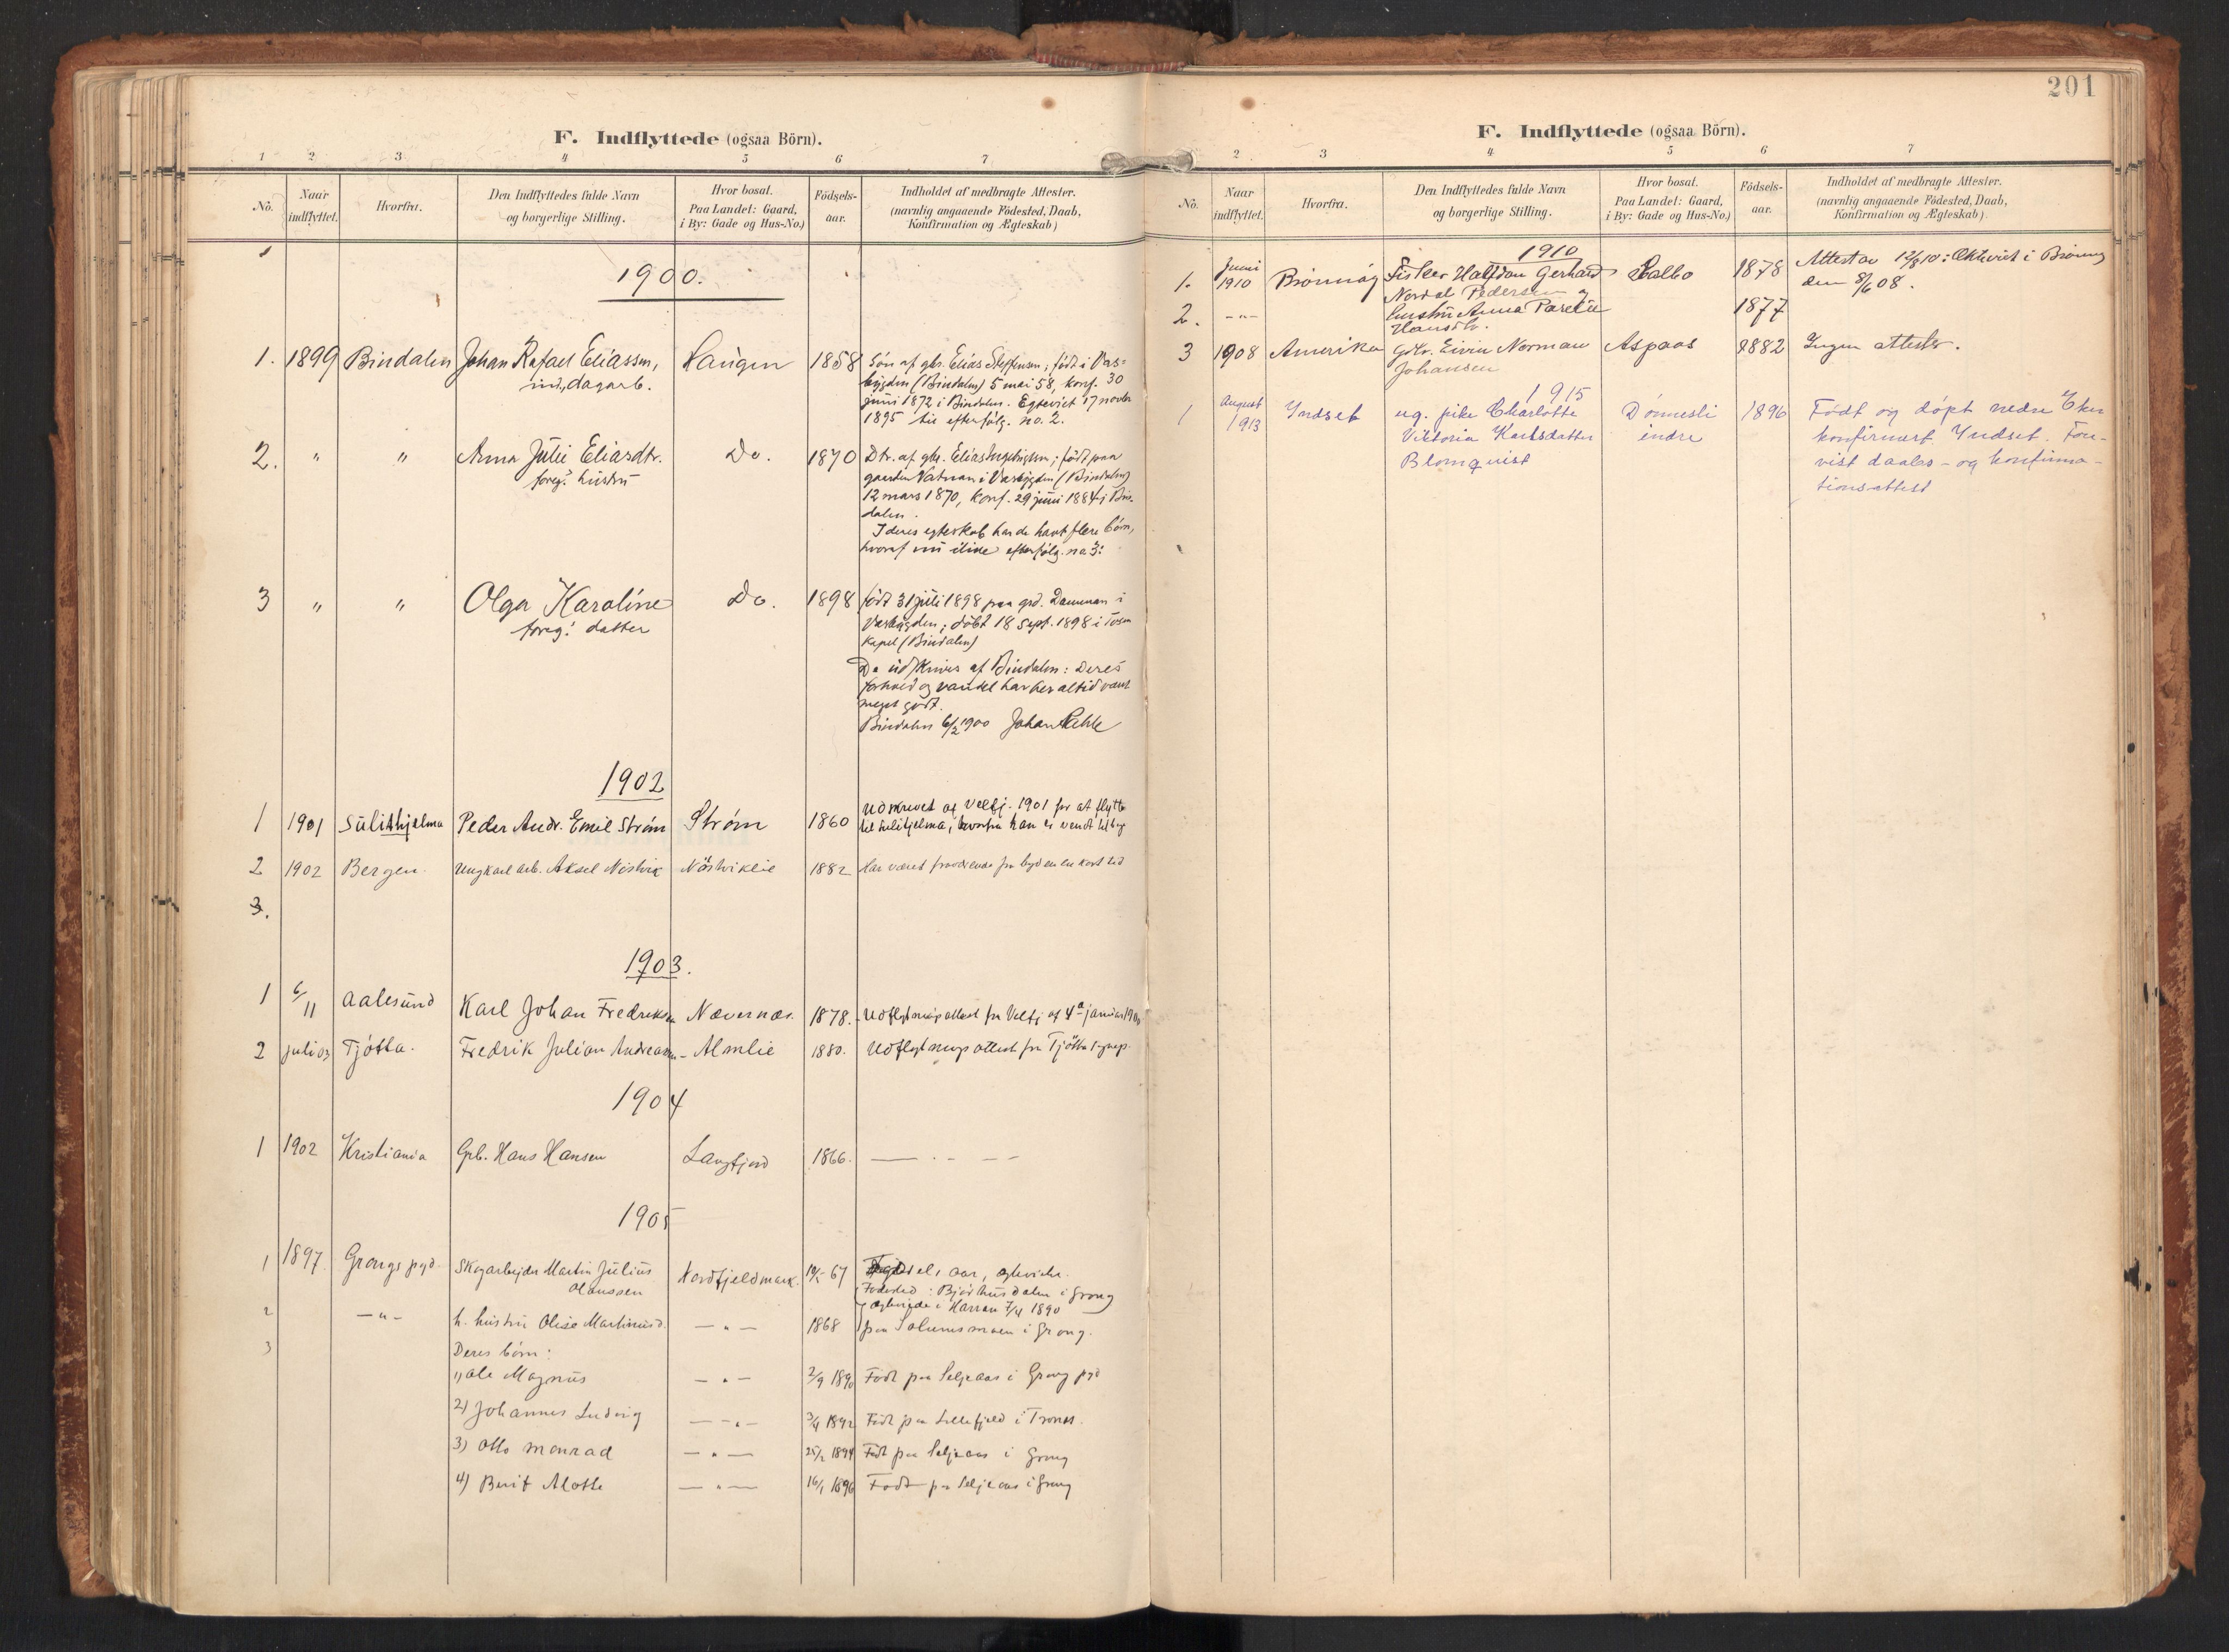 F. Indflyttede (ogsaa Börn).
1 2 3 4 5 6 7
No. Naar indflyttet. Hvorfra. Den Indflyttedes fulde Navn og borgerlige Stilling. Hvor bosat. Paa Landet: Gaard, i By: Gade og Hus-No.) Födsels-aar. Indholdet af medbragte Attester. (navnlig angaaende Födested, Daab, Konfirmation og Ægteskab)
1900.
1. 1899 Bindalen Johan Rafael Eliassen, Haugen 1858 Søn af gbr. Elias Steffensen; født i Vas-
ind., dagarb. bygden (Bindalen) 5 mai 58, konf. 30
juni 1872 i Bindalen. Egteviet 17 novbr
1895 til efterfølg. no. 2.
2. " " Anna Julie Eliasdtr. Do. 1870 Dtr. af gbr. Elias Ingebrigtsen; født paa
foreg.s hustru gaarden Vatnan i Vasbygden (Bindalen)
12 mars 1870, konf. 29 juni 1884 i Bin-
dalen.
I deres egteskab har de havt flere børn,
hvoraf nu ilive efterfølg. no 3:
3 " " Olga Karoline Do. 1898 født 31 juli 1898 paa grd. Dammen i
foreg.s datter Vasbygden; døbt 18 sept. 1898 i Tosen
kapel (Bindalen)
De udskrives af Bindalen: Deres
forhold og vandel har her altid været
meget godt.
Bindalen 6/2 1900 Johan
1902
1 1901 Sulithjelma Peder Andr. Emil Strøm Strøm 1860 Udskrevet af Velfj. 1901 for at flytte
til Sulitjelma, hvorfra han er vendt tilbage
2 1902 Bergen. Ungkarl arb. Aksel Nøstvik Nöstviklie 1882 Har været fraværende fra bygden en kort tid
3.
1903.
1 6/11 Aalesund Karl Johan Fredriksen Nævernes. 1878. Udflytningsattest fra Velfj af 4de januar 190
2 juli 03 Tjøtta. Fredrik Julian Andreassen - Almlie 1880. Udflytningsattest fra Tjøtta sognep.
1904
1 1902 Kristiania Grb. Hans Hansen Langfjord 1866.
1905
1 1897. Grongs pgd. Skogarbejder Martin Julius Nordfjeldmark. 67 aar, egteviede.
Olaussen Fødested: Bjørhusdalen i Grong
egteviede i Harran 7/4 1890
2 —"— h. hustru Olise Martinusd. —"— 1868 paa Solumsmoen i Grong.
3 Deres børn:
1) Ole Magnus —"— 2/9 1890 Født paa Seljeaas i Grong pgd
2) Johannes Ludvig —"— 3/4 1892 Født paa Lillefjeld i Trones.
3) Otto Monrad —"— 25/2 1894 Født paa Seljeaas i Grong
4) Berit Alotte —"— 16/1 1896 Født paa Seljeaas i Grong
201
F. Indflyttede (ogsaa Börn).
2 3 4 5 6 7
No. Naar indflyttet. Hvorfra. Den Indflyttedes fulde Navn og borgerlige Stilling. Hvor bosat. Paa Landet: Gaard, i By: Gade og Hus-No.) Födsels-aar. Indholdet af medbragte Attester. (navnlig angaaende Födested, Daab, Konfirmation og Ægteskab)
1910
1. Juni 1910 Brönnöy Fisker Halfdan Gerhard Salbo 1878 Attest av 12/8 10: Ekteviet i Brönnöy
Nordal Pedersen og den 8/6 08.
2. —"— hustru Anna Pareli 1877
Hansdtr.
3 1908 Amerika Gdbr. Eivin Norman Aspaas 1882 Ingen attester.
Johansen
1915
1 August 1913 Yndset ug. pike Charlotte Dønnesli 1896 Født og døpt nedre Eker
Viktoria Karlsdatter indre konfirmert Yndset. Fore-
Blomquist vist daabs- og konfirma-
tionsattest